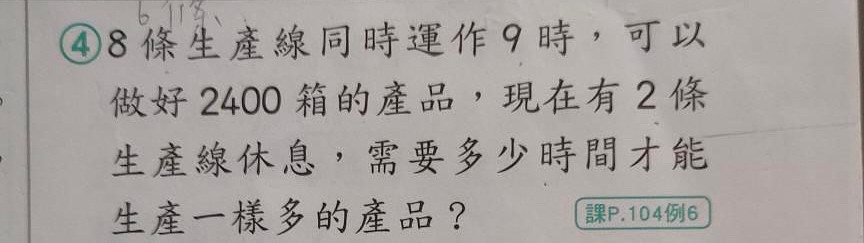 ④8條生產線同時運作9時，可以
做好2400箱的產品，現在有2條
生產線休息，需要多少時間才能
生產一樣多的產品？
課P.104例6